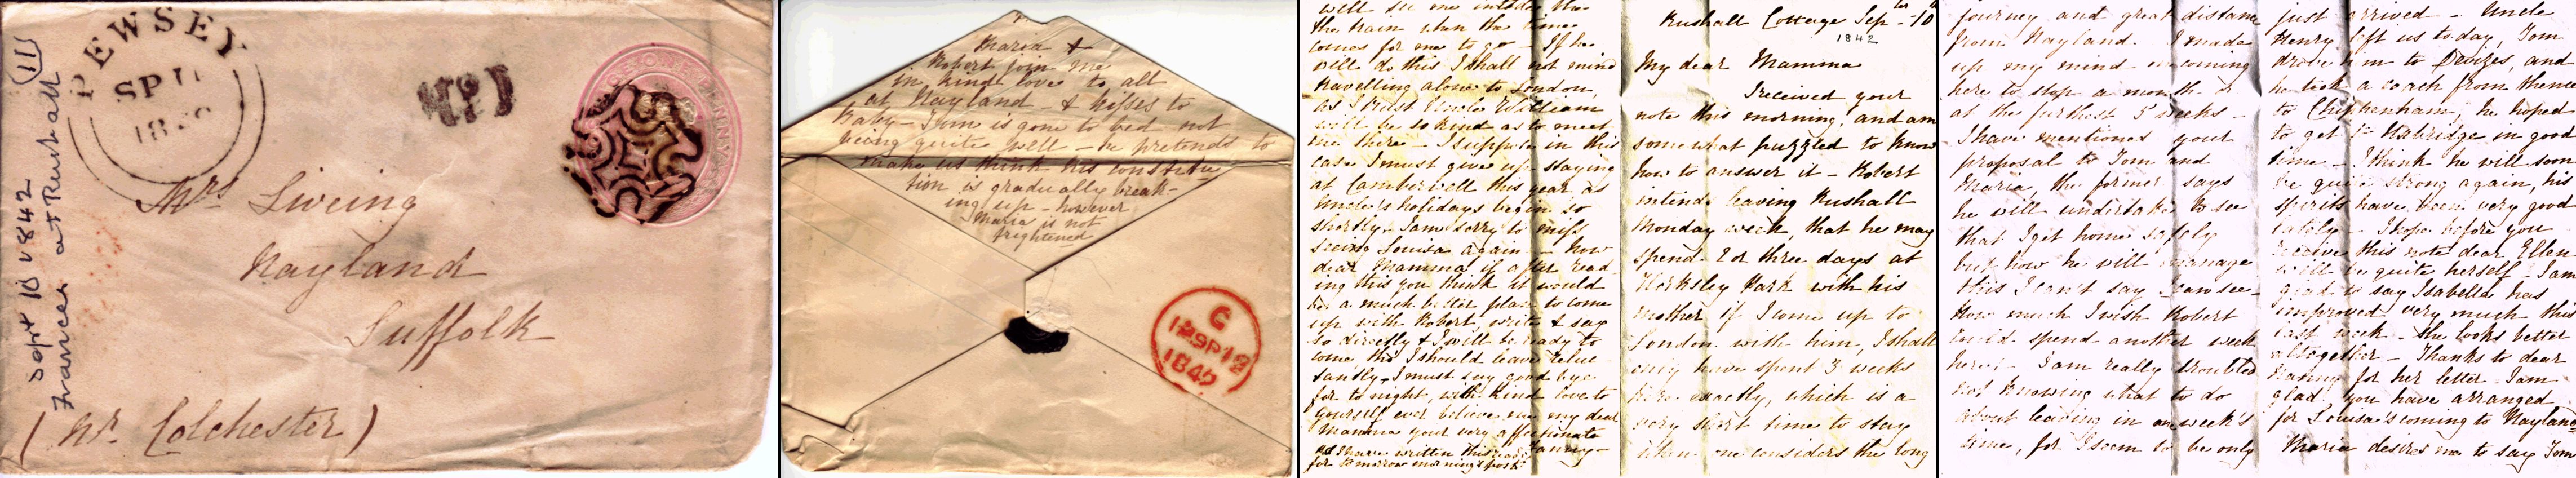 PEWSEY
SP 11
18
No. 1
ONE PENNY
Mrs Liveing
Nayland
Suffolk
(Nr. Colchester)
Sept 10 1842 (11)
Frances at Rushall
Maria &
Robert join me
in kind love to all
at Nayland - & kisses to
Baby - Tom is gone to bed not
being quite well - he pretends to
make us think his constitu
tion is gradually break-
ing up - however
Maria is not
frightened
C
12SP12
1842
well see me into the
the train when the time
comes for me to go - If he
will do this I shall not mind
travelling alone to London,
as I trust Uncle William
will be so kind as to meet
me there - I suppose in this
case I must give up staying
at Camberwell this year as
Uncle's holidays begin so
shortly - I am sorry to miss
seeing Louisa again - now
dear Mamma if after read-
ing this you think it would
be a much better plan to come
up with Robert, write & say
so directly & I will be ready to
come tho' I should leave reluc
tantly. I must say good bye
for to night, with kind love to
yourself ever believe me my dear
Mamma your very affectionate
as I have written this
for tomorrow morning's post
Rushall Cottage Sep 10
1842
My dear Mamma
I received your
note this morning, and am
somewhat puzzled to know
how to answer it - Robert
intends leaving Rushall
Monday week, that he may
spend 2 or three days at
Horksley Park with his
mother if I come up to
London with him, I shall
only have spent 3 weeks
here exactly, which is a
very short time to stay
when one considers the long
journey and great distance
from Nayland. I made
up my mind in coming
here to stop a month or
at the furthest 5 weeks -
I have mentioned your
proposal to Tom and
Maria, the former says
he will undertake to see
that I get home safely
but how he will manage
this I can't say I can see -
How much I wish Robert
could spend another week
here; - I am really troubled
not knowing what to do
about leaving in a week's
time, for I seem to be only
just arrived - Uncle
Henry left us today, Tom
drove him to Devizes, and
he took a coach from thence
to Chippenham, he hoped
to get to Uxbridge in good
time - I think he will soon
be quite strong again, his
spirits have been very good
lately - I hope before you
receive this note dear Ellen
will be quite herself - I am
glad to say Isabella has
improved very much this
last week - she looks better
altogether - Thanks to dear
Nanny for her letter - I am
glad you have arranged
for Louisa's coming to Nayland
Maria desires me to say Tom